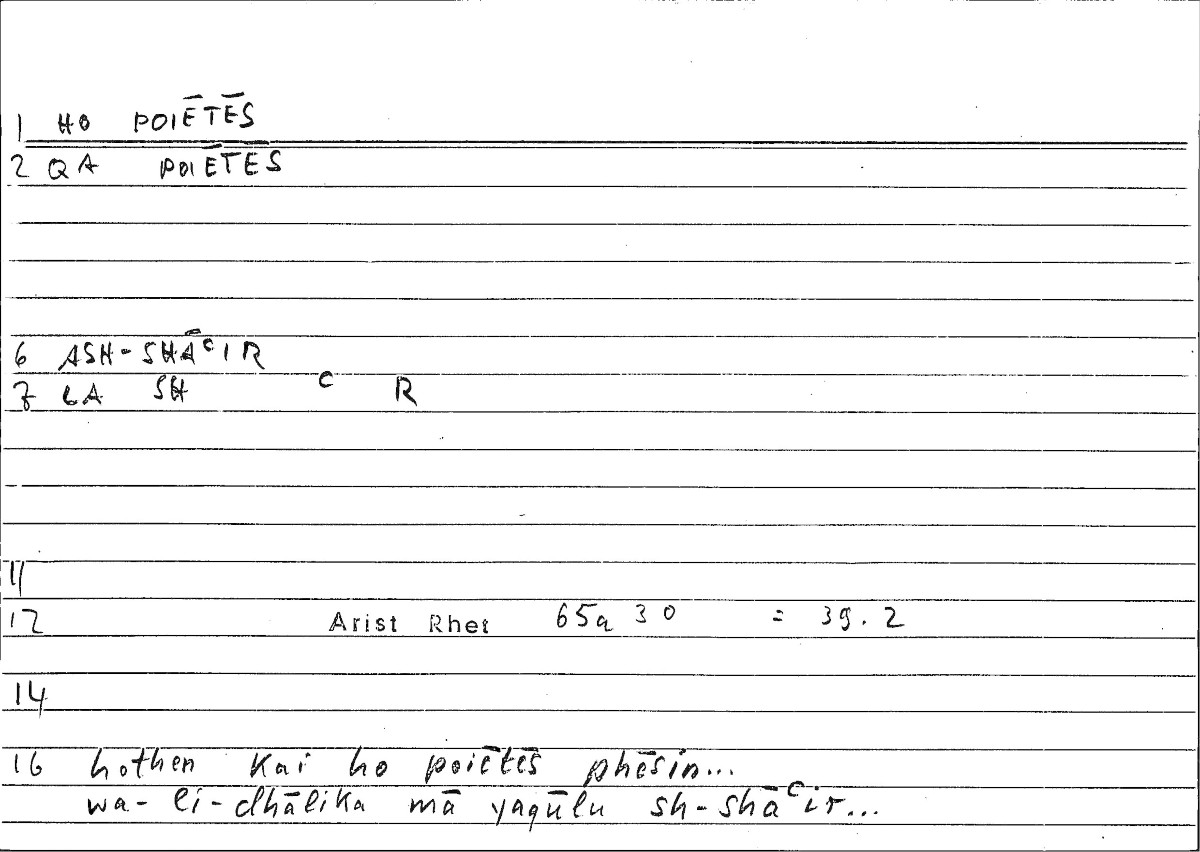 1 HO POIĒTĒS
2 QA POIĒTĒS
6 ASH-SHĀᶜIR
7 LA SH ᶜ R
11
12 Arist Rhet 65a 30 = 39.2
14
16 hothen kai ho poiētēs phēsin...
wa-li-dhālika mā yaqūlu sh-shāᶜir...